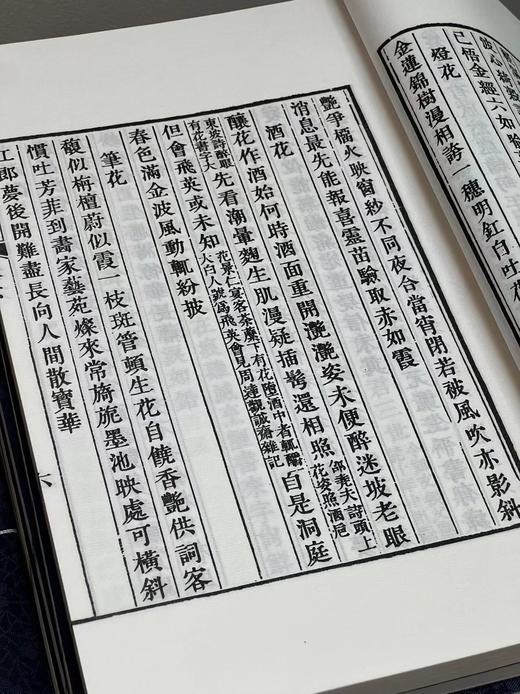 已悟金經六如
燈花
金蓮錦樹漫相誇一穗明釭自吐花
艷爭榴火映窗紗不同夜合當宵閉若被風吹亦影斜
消息最先能報喜靈苗驗取赤如霞
酒花
釀花作酒始何時酒面重開灩灩姿未便醉迷坡老眼
東坡詩醉眼有花書字大先看潮暈麴生肌漫疑插鬢還相照邵堯夫詩頭上花姿照酒巵
但會飛英或未知范景仁宴客荼蘼下有花墮酒中者飄釂大白人號為飛英會見周達觀誠齋雜記自是洞庭
春色滿金波風動輒紛披
筆花
馥似栴檀蔚似霞一枝斑管頓生花自饒香艷供詞客
慣吐芳菲到畫家藝苑燦來常旖旎墨池映處可橫斜
江郎夢後開難盡長向人間散寶華
六